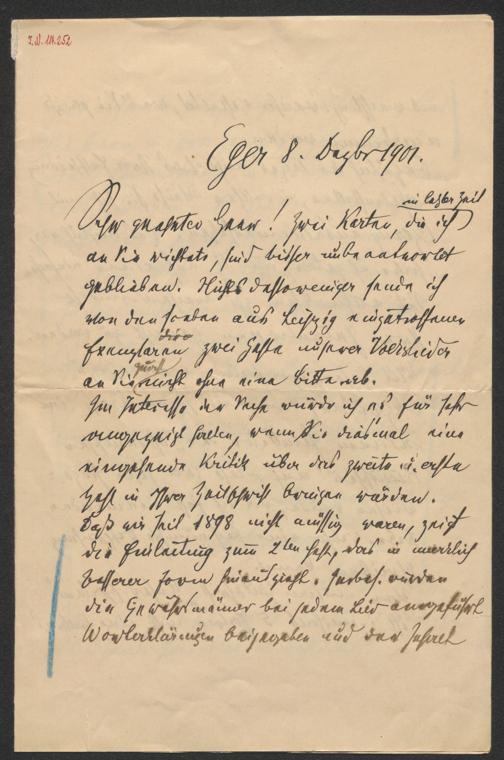 I.N. 111.252
Eger 8. Dezbr 1901.
in letzter Zeit
Sehr geehrter Herr! Zwei Karten, die ich
an Sie richtete, sind bisher unbeantwortet
geblieben. Nichts destoweniger sende ich
von den soeben aus Leipzig eingetroffenen
Exemplaren zwei Hefte unserer Volkslieder
an Sie nicht ohne eine Bitte ab.
Im Interesse der Sache würde ich es für sehr
angezeigt halten, wenn Sie diesmal eine
eingehende Kritik über das zweite u. erste
Heft in Ihrer Zeitschrift bringen würden.
Daß wir seit 1898 nicht müssig waren, zeigt
die Einleitung zum 2ten Heft, das in merklich
besserer Form hinauszieht. Insbes. wurden
die Gewährsmänner bei jedem Lied angeführt
Worterklärungen beigegeben und der